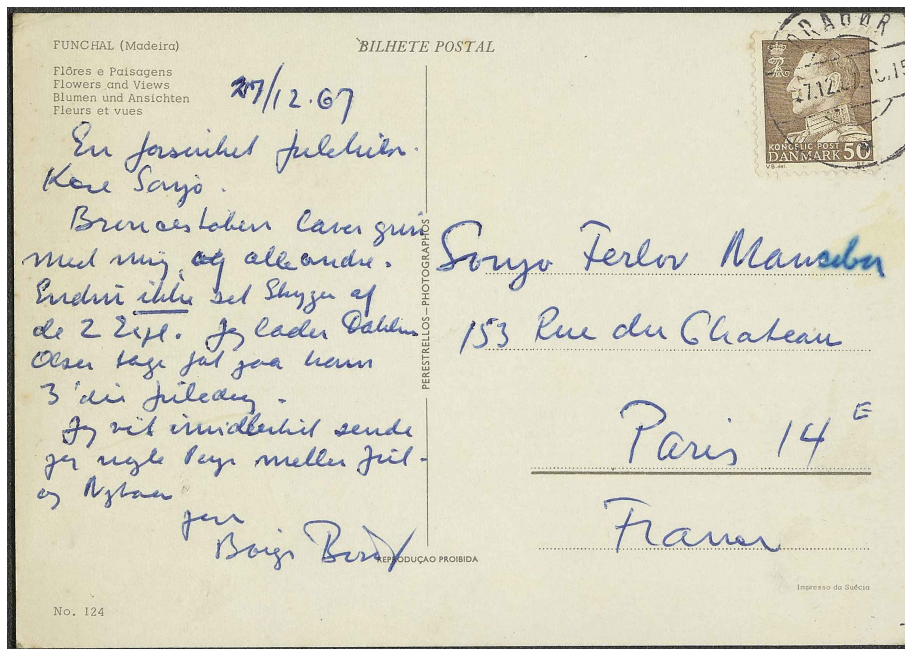 FUNCHAL (Madeira)
Flôres e Paisagens
Flowers and Views
Blumen und Ansichten
Fleurs et vues
BILHETE POSTAL
27/12.67
En forsinket Julehilsen.
Kære Sonja.
Broncestøberen laver grin
med mig, og alle andre.
Endnu ikke set Skygge af
de 2 Expl. Jeg lader Dahlmann
Olsen tage fat paa ham
3'die Juledag.
Jeg vil imidlertid sende
jer nogle Penge mellem Jul-
og Nytaar
jeres
Børge Birch
PERESTRELLOS—PHOTOGRAPHOS
REPRODUÇAO PROIBIDA
No. 124
DRAGØR
27.12.67
KONGELIG POST
DANMARK 50
Sonja Ferlov Mancoba
153 Rue du Chateau
Paris 14 E
France
Impresso da Suécia